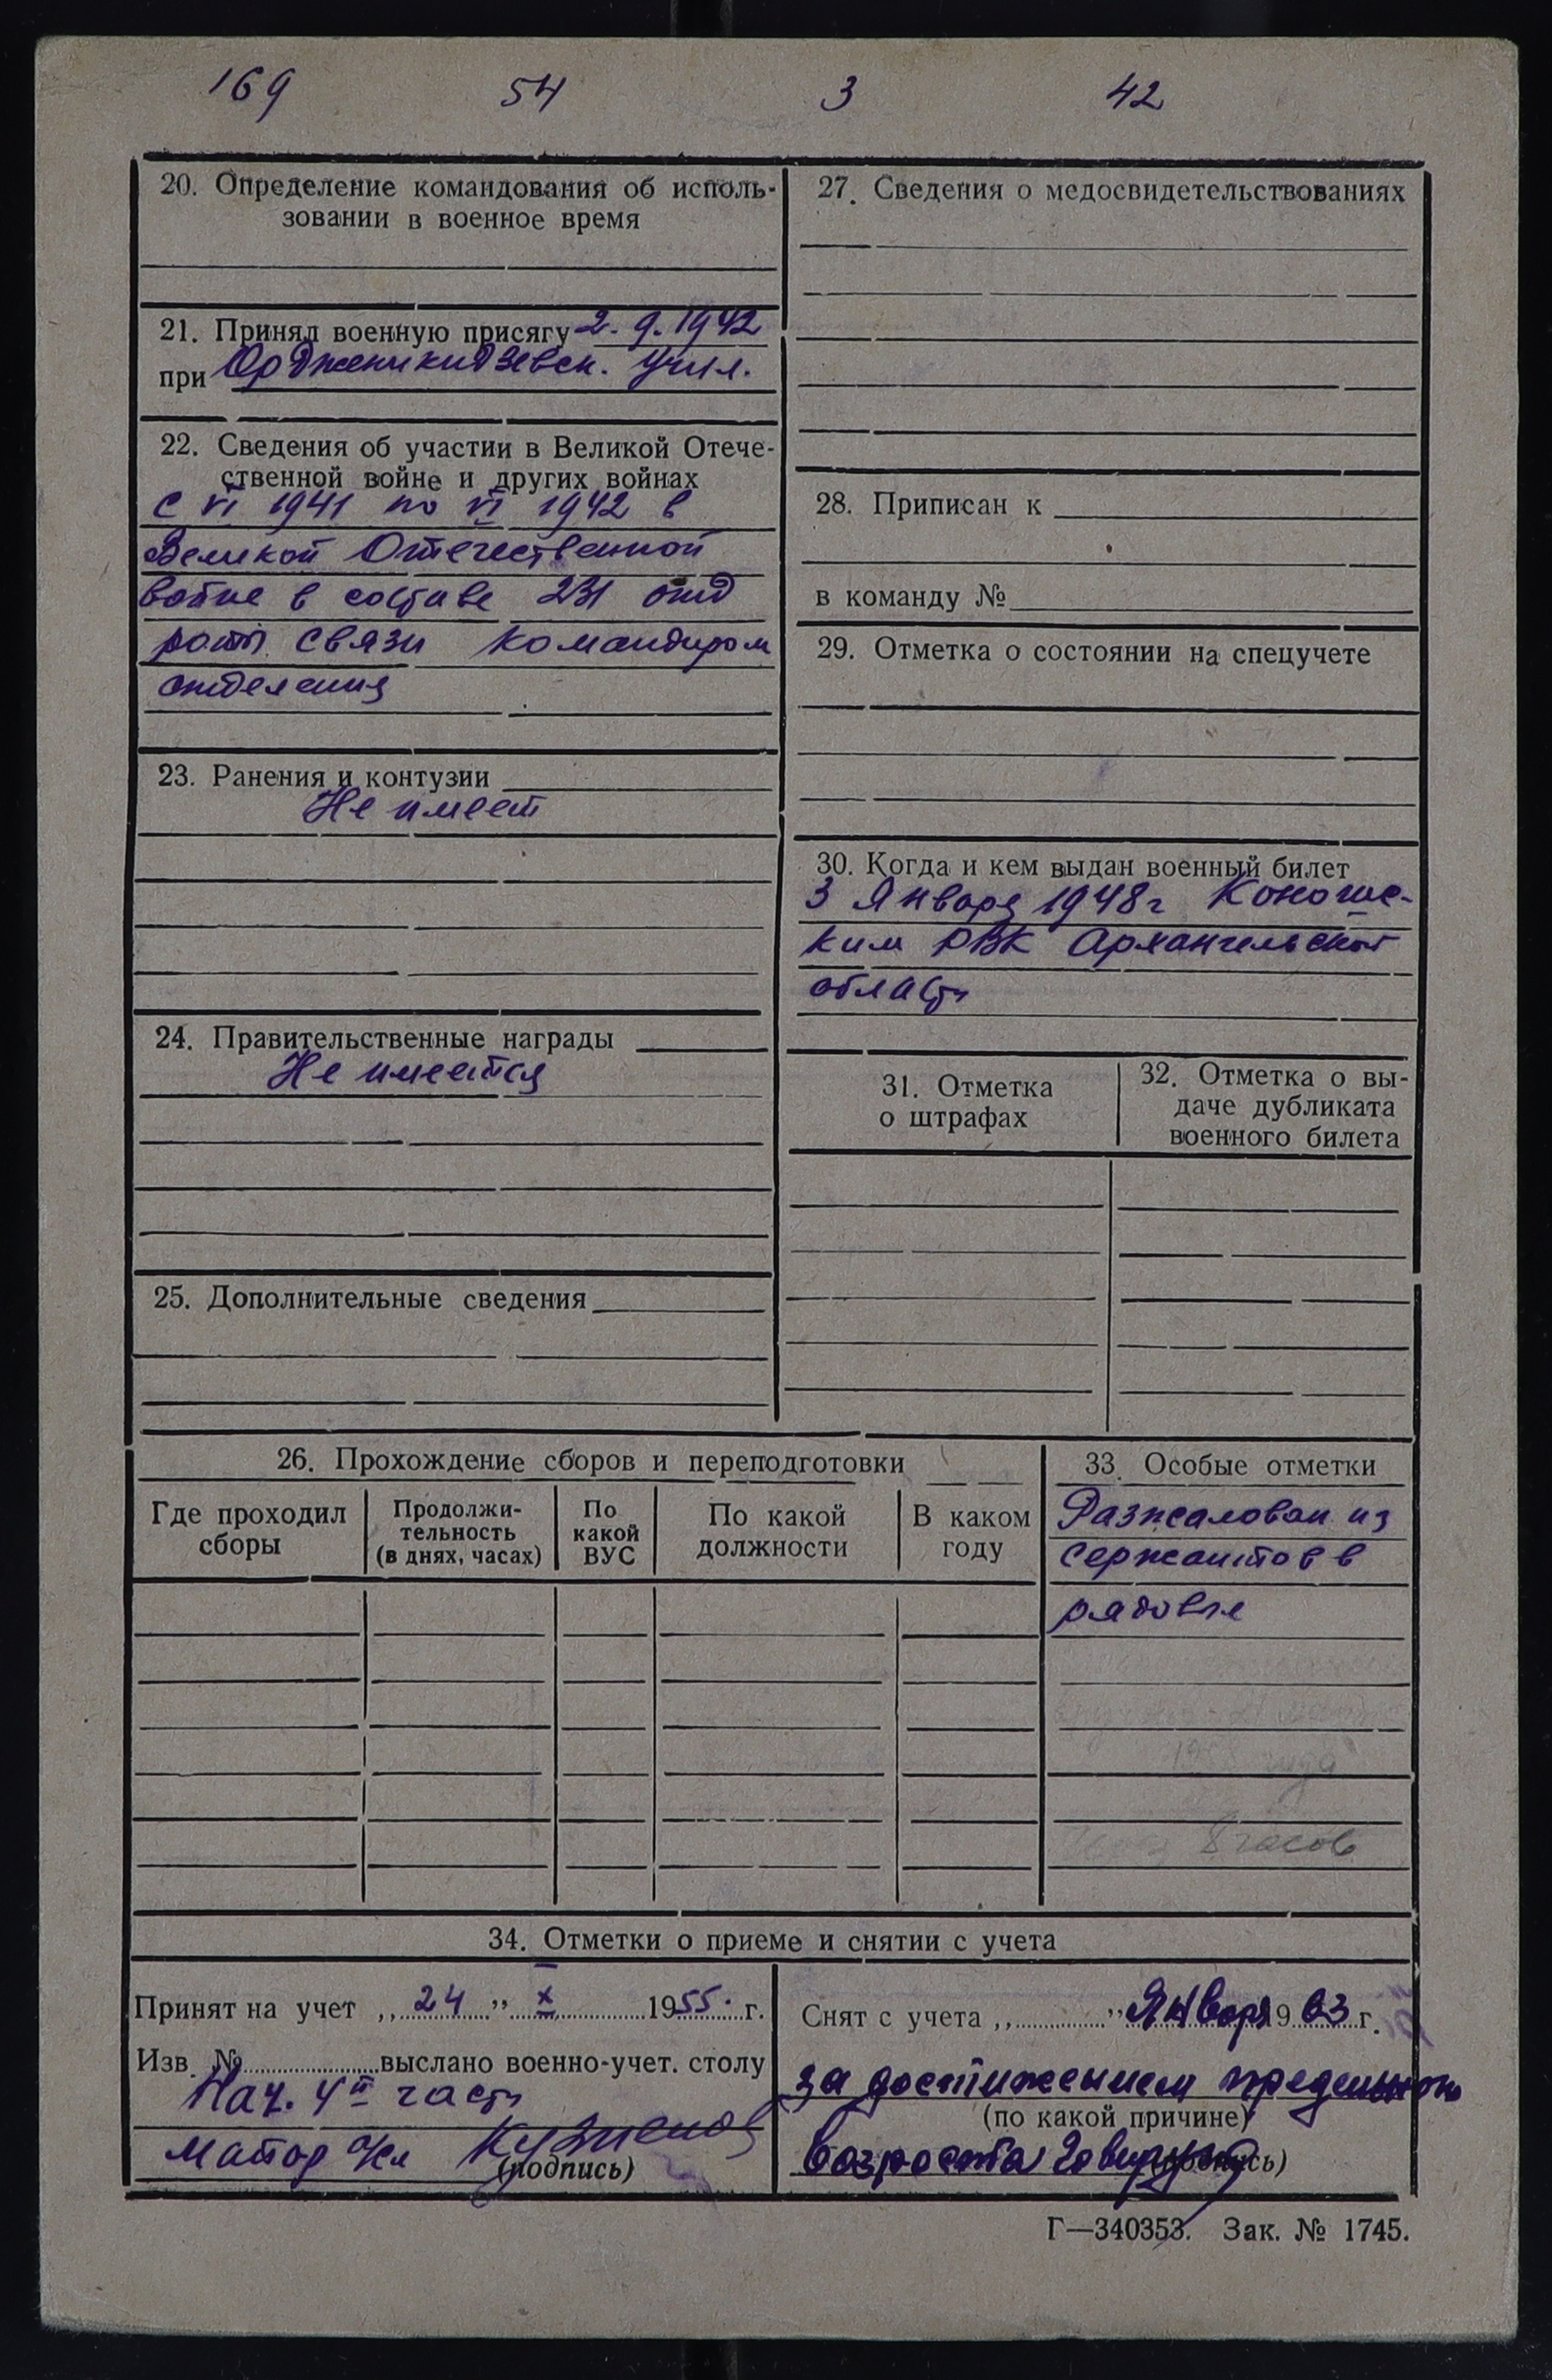 169 54 3 42
20. Определение командования об исполь-
зовании в военное время
21. Принял военную присягу 2. 9. 1942
при Орджоникидзевск. Учил.
22. Сведения об участии в Великой Отече-
ственной войне и других войнах
С VI 1941 по VI 1942 в
Великой Отечественной
войне в составе 231 отд
роты связи командиром
отделения
23. Ранения и контузии
Не имеет
24. Правительственные награды
Не имеется
25. Дополнительные сведения
27. Сведения о медосвидетельствованиях
28. Приписан к
в команду №
29. Отметка о состоянии на спецучете
30. Когда и кем выдан военный билет
3 Января 1948 г Коношс-
ким РВК Архангельской
области
31. Отметка
о штрафах
32. Отметка о вы-
даче дубликата
военного билета
26. Прохождение сборов и переподготовки
Где проходил
сборы
Продолжи-
тельность
(в днях, часах)
По
какой
ВУС
По какой
должности
В каком
году
33. Особые отметки
Разжалован из
сержантов в
рядовые
года
8 часов
34. Отметки о приеме и снятии с учета
Принят на учет „24" X 1955. г.
Изв. № выслано военно-учет. столу
Нач. 4й части
майор
(подпись)
Снят с учета „ " Января 1963 г.
за достижением предельного
(по какой причине)
возраста
(подпись)
Г—340353. Зак. № 1745.